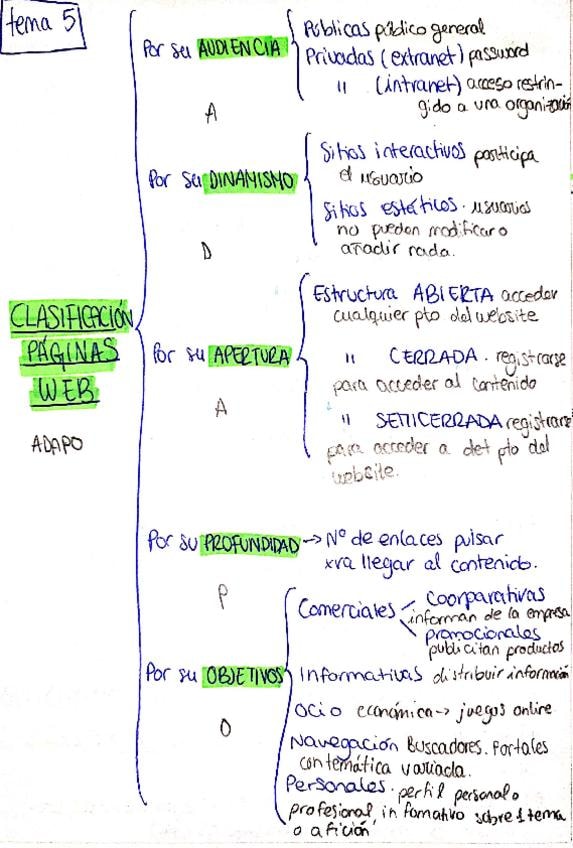 tema 5
CLASIFICACIÓN
PÁGINAS
WEB
ADAPO
Por su AUDIENCIA
A
Públicas público general
Privadas (extranet) password
" (intranet) acceso restrin-
gido a una organización
Por su DINAMISMO
D
Sitios interactivos participa
el usuario
Sitios estáticos. usuarios
no pueden modificar o
añadir nada.
Por su APERTURA
A
Estructura ABIERTA acceder
cualquier pto del website
" CERRADA. registrarse
para acceder al contenido
" SEMICERRADA registrarse
para acceder a det pto del
website.
Por su PROFUNDIDAD → Nº de enlaces pulsar
xra llegar al contenido.
P
Por su OBJETIVOS
O
Comerciales
coorparativas
informan de la empresa
promocionales
publicitan productos
Informativas distribuir información
Ocio económica → juegos online
Navegación Buscadores. Portales
con temática variada.
Personales. perfil personal o
profesional, informativo sobre 1 tema
o afición